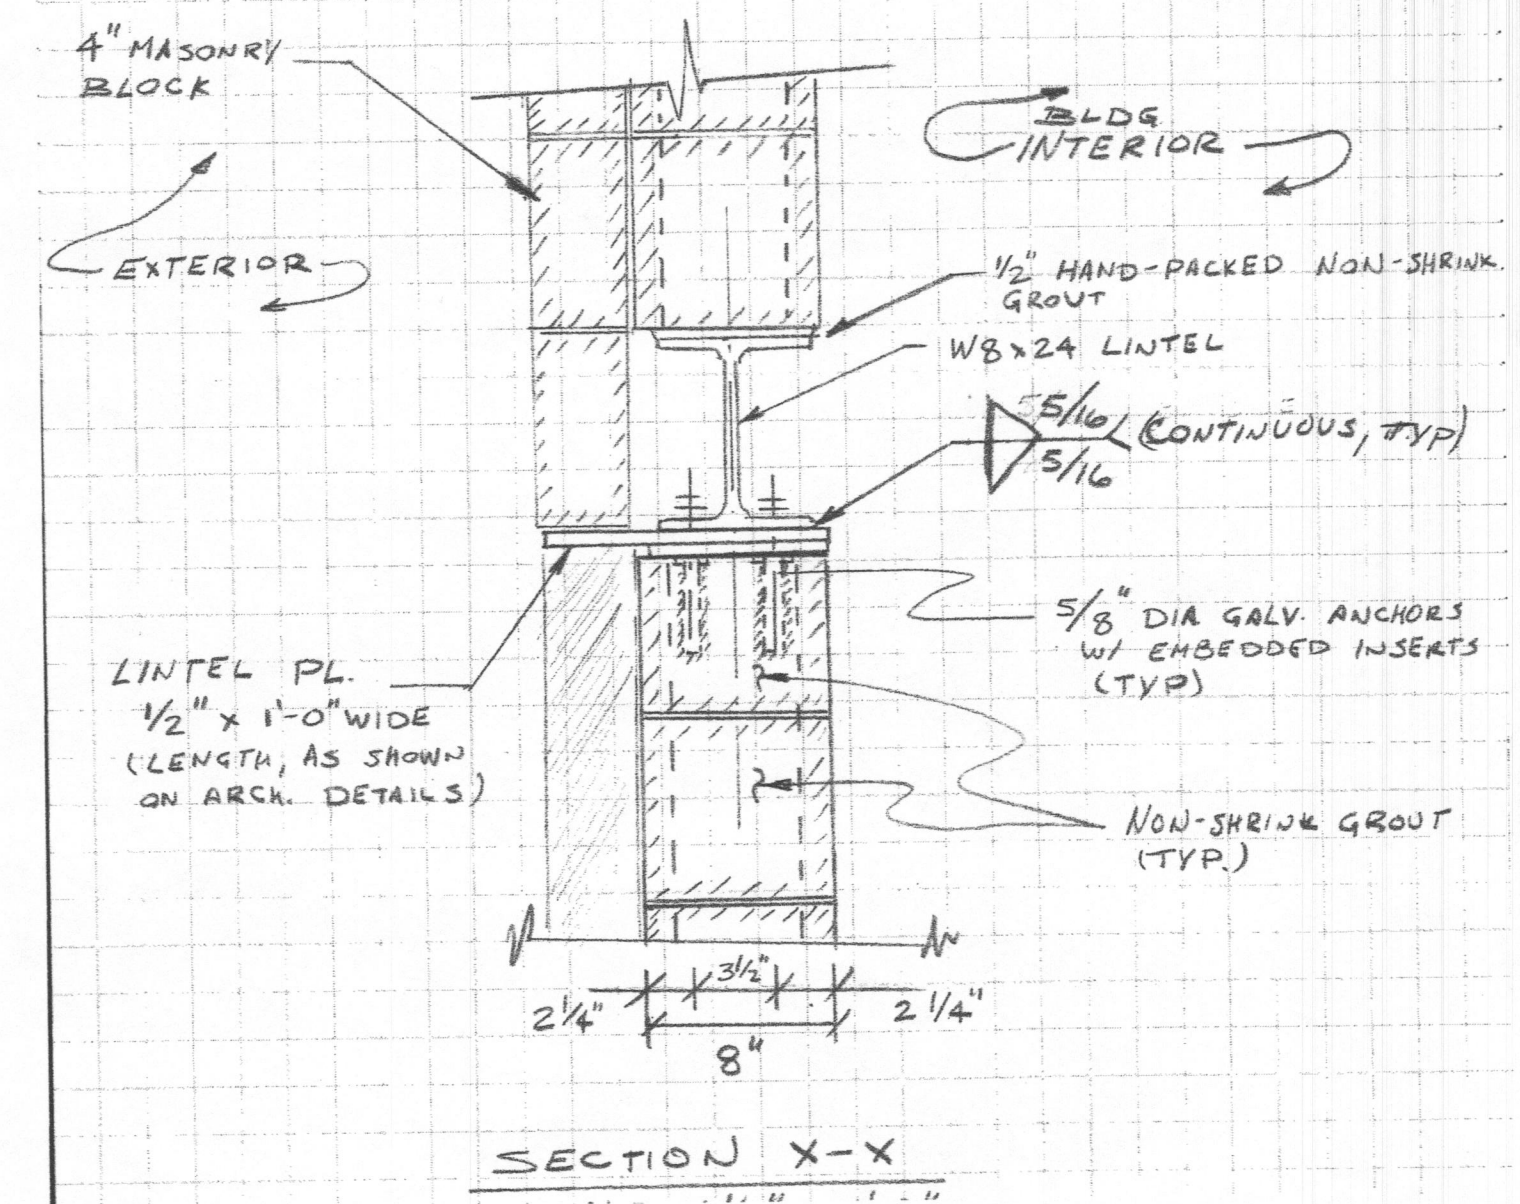 4" MASONRY
BLOCK
BLDG
INTERIOR
EXTERIOR
1/2" HAND-PACKED NON-SHRINK
GROUT
W8x24 LINTEL
5/16 (CONTINUOUS, TYP)
5/16
5/8" DIA GALV. ANCHORS
W/ EMBEDDED INSERTS
(TYP)
LINTEL PL.
1/2" x 1'-0" WIDE
(LENGTH, AS SHOWN
ON ARCH. DETAILS)
NON-SHRINK GROUT
(TYP.)
3 1/2"
2 1/4" 2 1/4"
8"
SECTION X-X